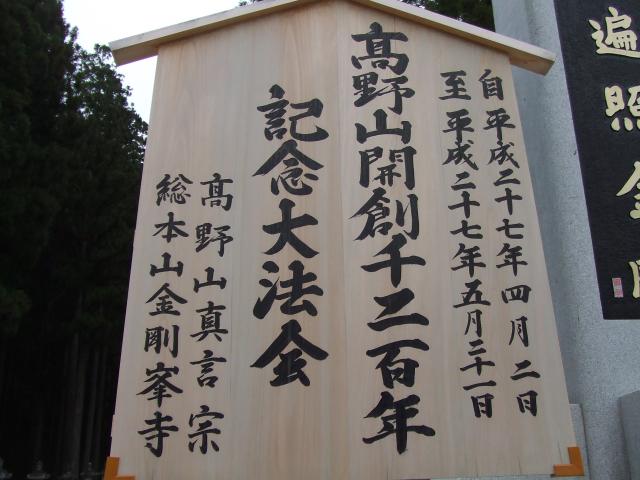 自 平成二十七年四月二日
至 平成二十七年五月二十一日
高野山開創千二百年
記念大法会
高野山真言宗
総本山金剛峯寺
遍照金剛